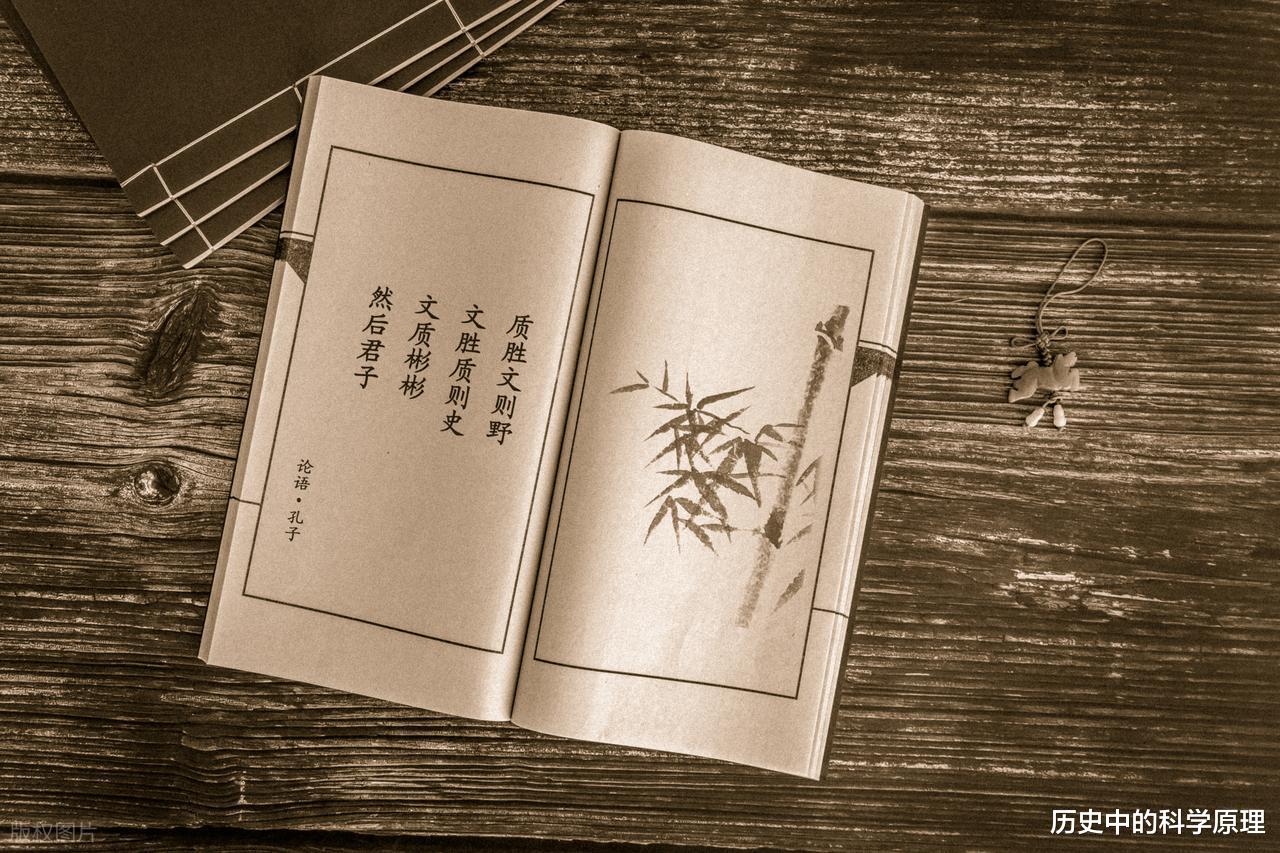 质胜文则野
文胜质则史
文质彬彬
然后君子
论语·孔子
版权图片
历史中的科学原理